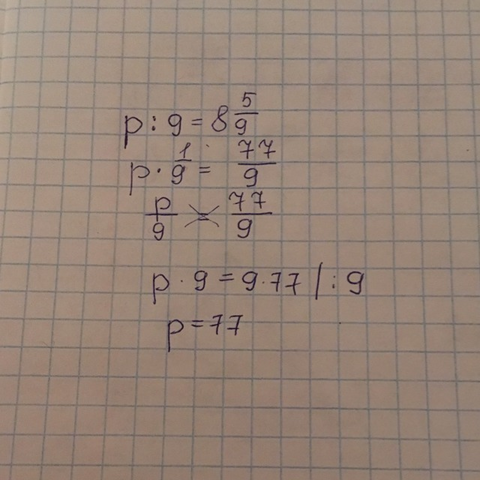 p : 9 = 8 5/9
p · 1/9 = 77/9
p/9 = 77/9
p · 9 = 9 · 77 | : 9
p = 77